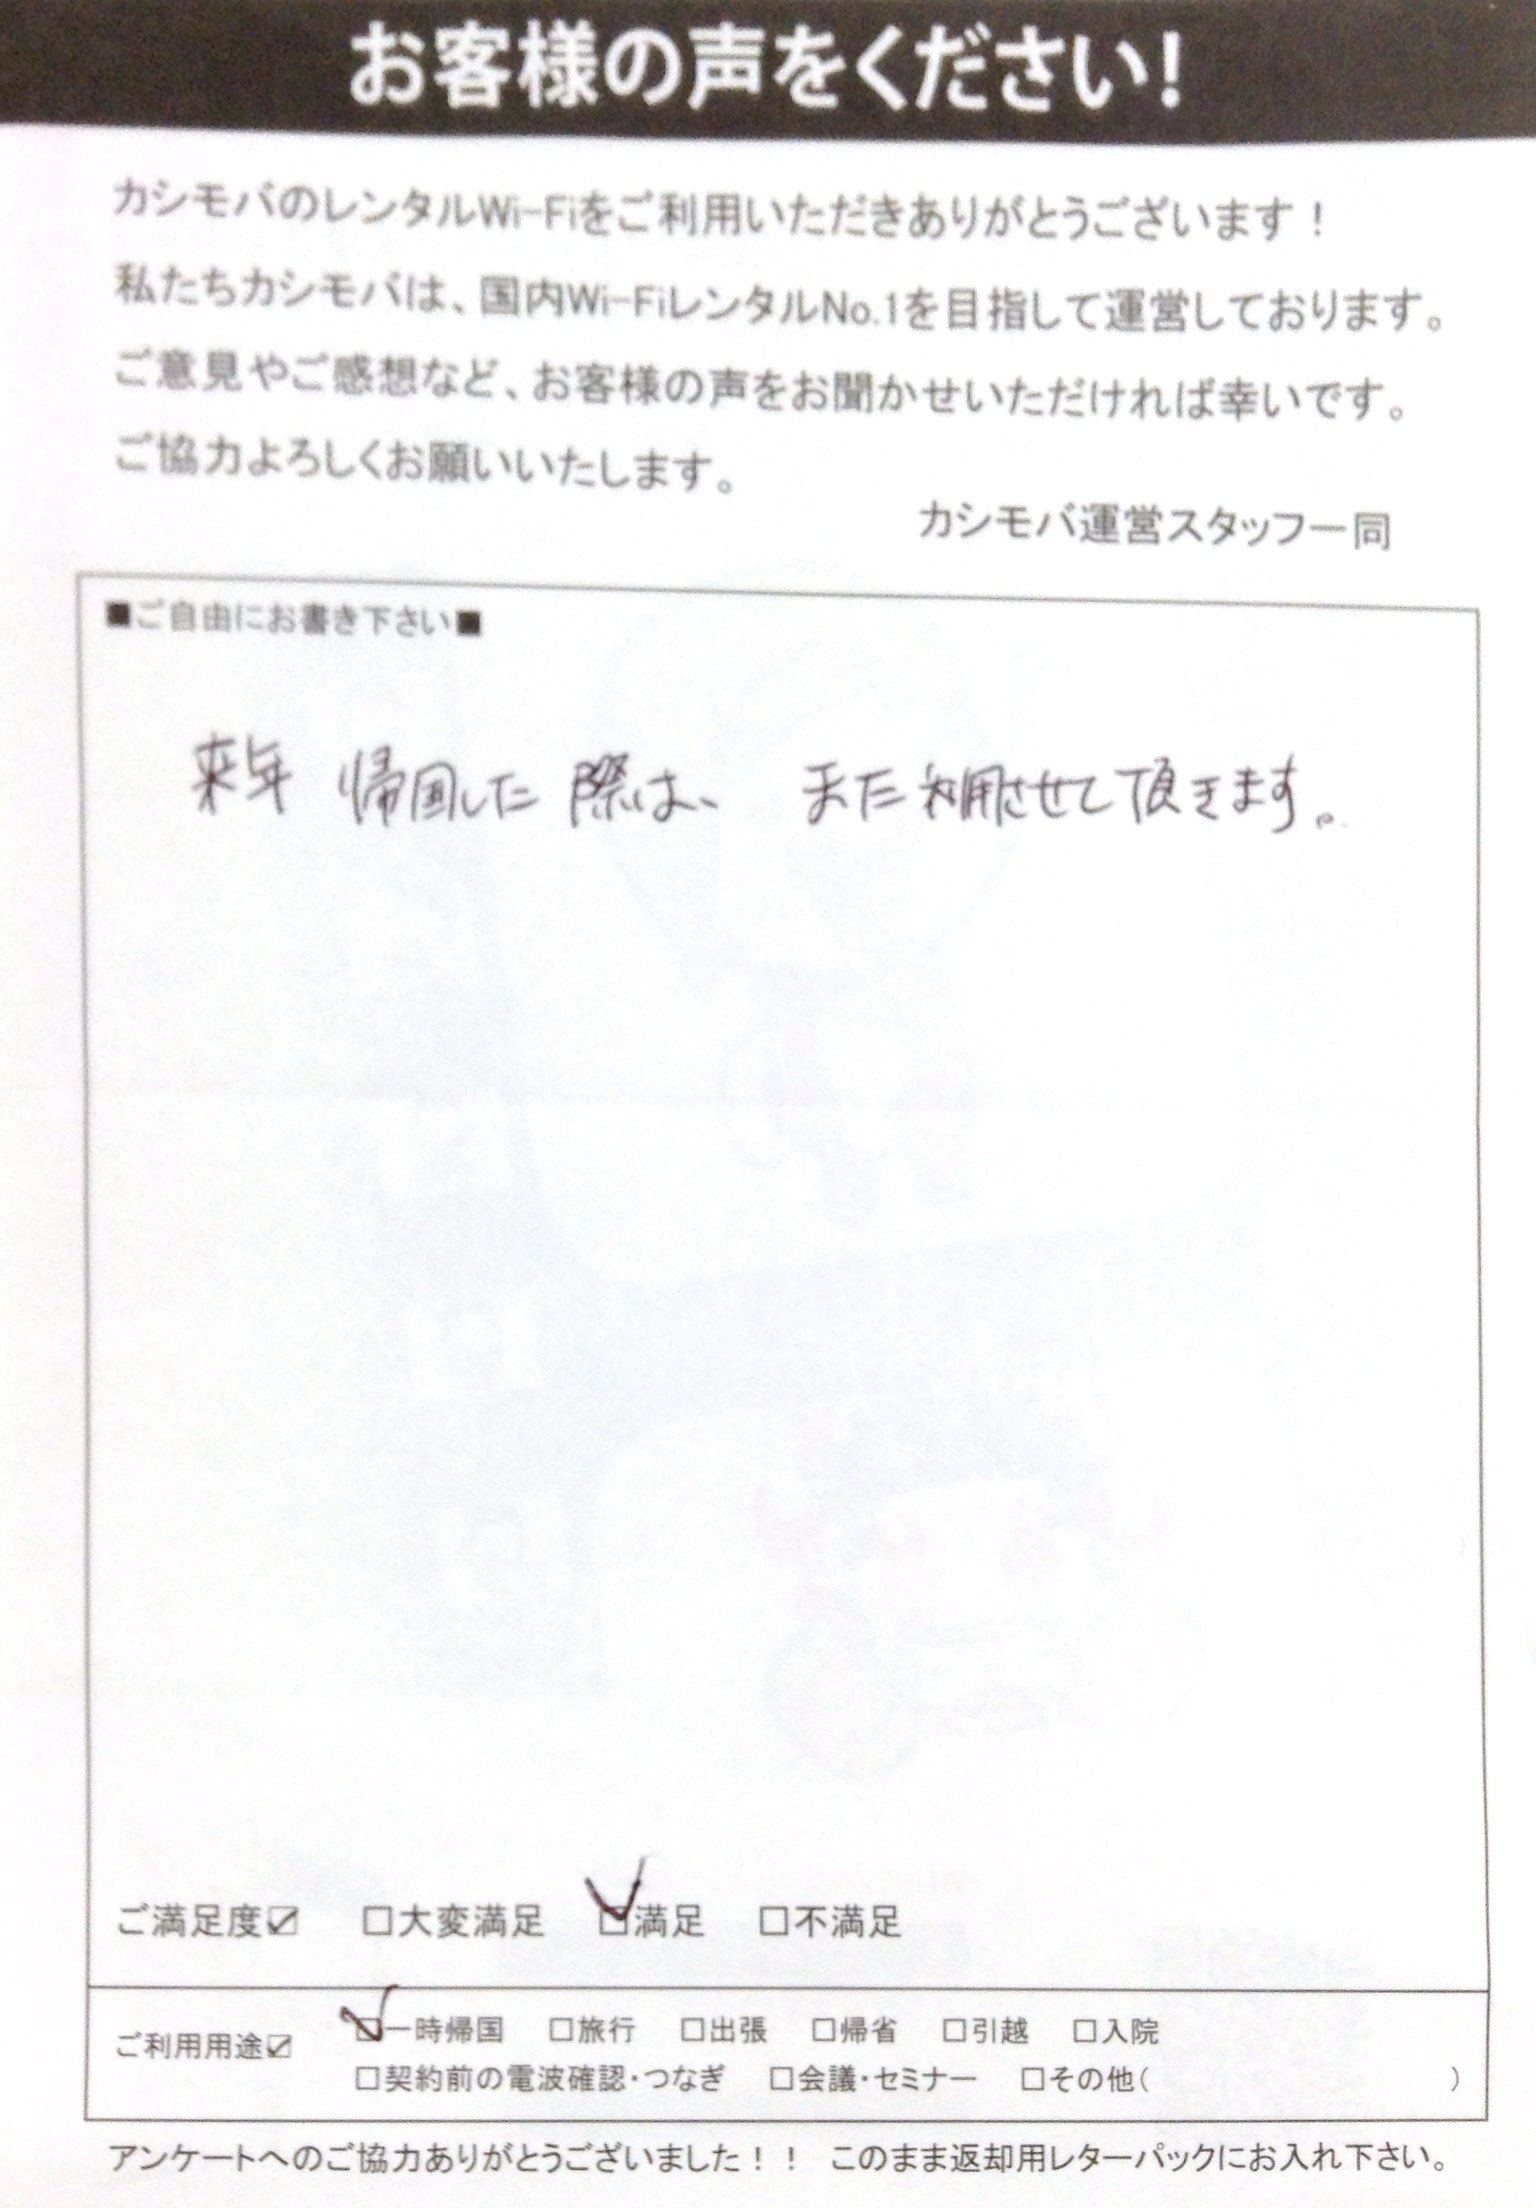 お客様の声をください!
カシモバのレンタルWi-Fiをご利用いただきありがとうございます！
私たちカシモバは、国内Wi-FiレンタルNo.1を目指して運営しております。
ご意見やご感想など、お客様の声をお聞かせいただければ幸いです。
ご協力よろしくお願いいたします。
カシモバ運営スタッフ一同
■ご自由にお書き下さい■
来年 帰国した際は、また利用させて頂きます。
ご満足度☑ □大変満足 ☑満足 □不満足
ご利用用途☑ ☑一時帰国 □旅行 □出張 □帰省 □引越 □入院
□契約前の電波確認・つなぎ □会議・セミナー □その他( )
アンケートへのご協力ありがとうございました！！ このまま返却用レターパックにお入れ下さい。